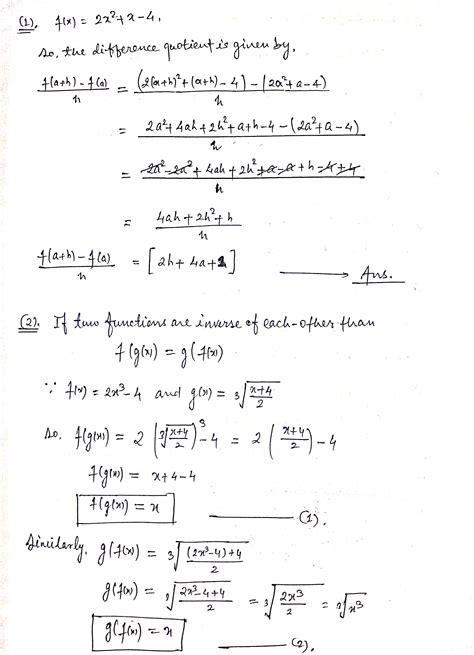 (1). f(x) = 2x²+x-4,
So, the difference quotient is given by,
f(a+h) - f(a) / h = (2(a+h)²+(a+h)-4) - (2a²+a-4) / h
= 2a²+4ah+2h²+a+h-4-(2a²+a-4) / h
= 2a²-2a²+4ah+2h²+a-a+h-4+4 / h
= 4ah+2h²+h / h
f(a+h) - f(a) / h = [2h+4a+1] → Ans.
(2). If two functions are inverse of each-other than
f(g(x)) = g(f(x))
∵ f(x) = 2x³-4 and g(x) = ∛(x+4 / 2)
So, f(g(x)) = 2 (∛(x+4 / 2))³ -4 = 2 (x+4 / 2) - 4
f(g(x)) = x+4-4
f(g(x)) = x —— (1).
Similarly, g(f(x)) = ∛((2x³-4)+4 / 2)
g(f(x)) = ∛(2x³-4+4 / 2) = ∛(2x³ / 2) = ∛x³
g(f(x)) = x —— (2).